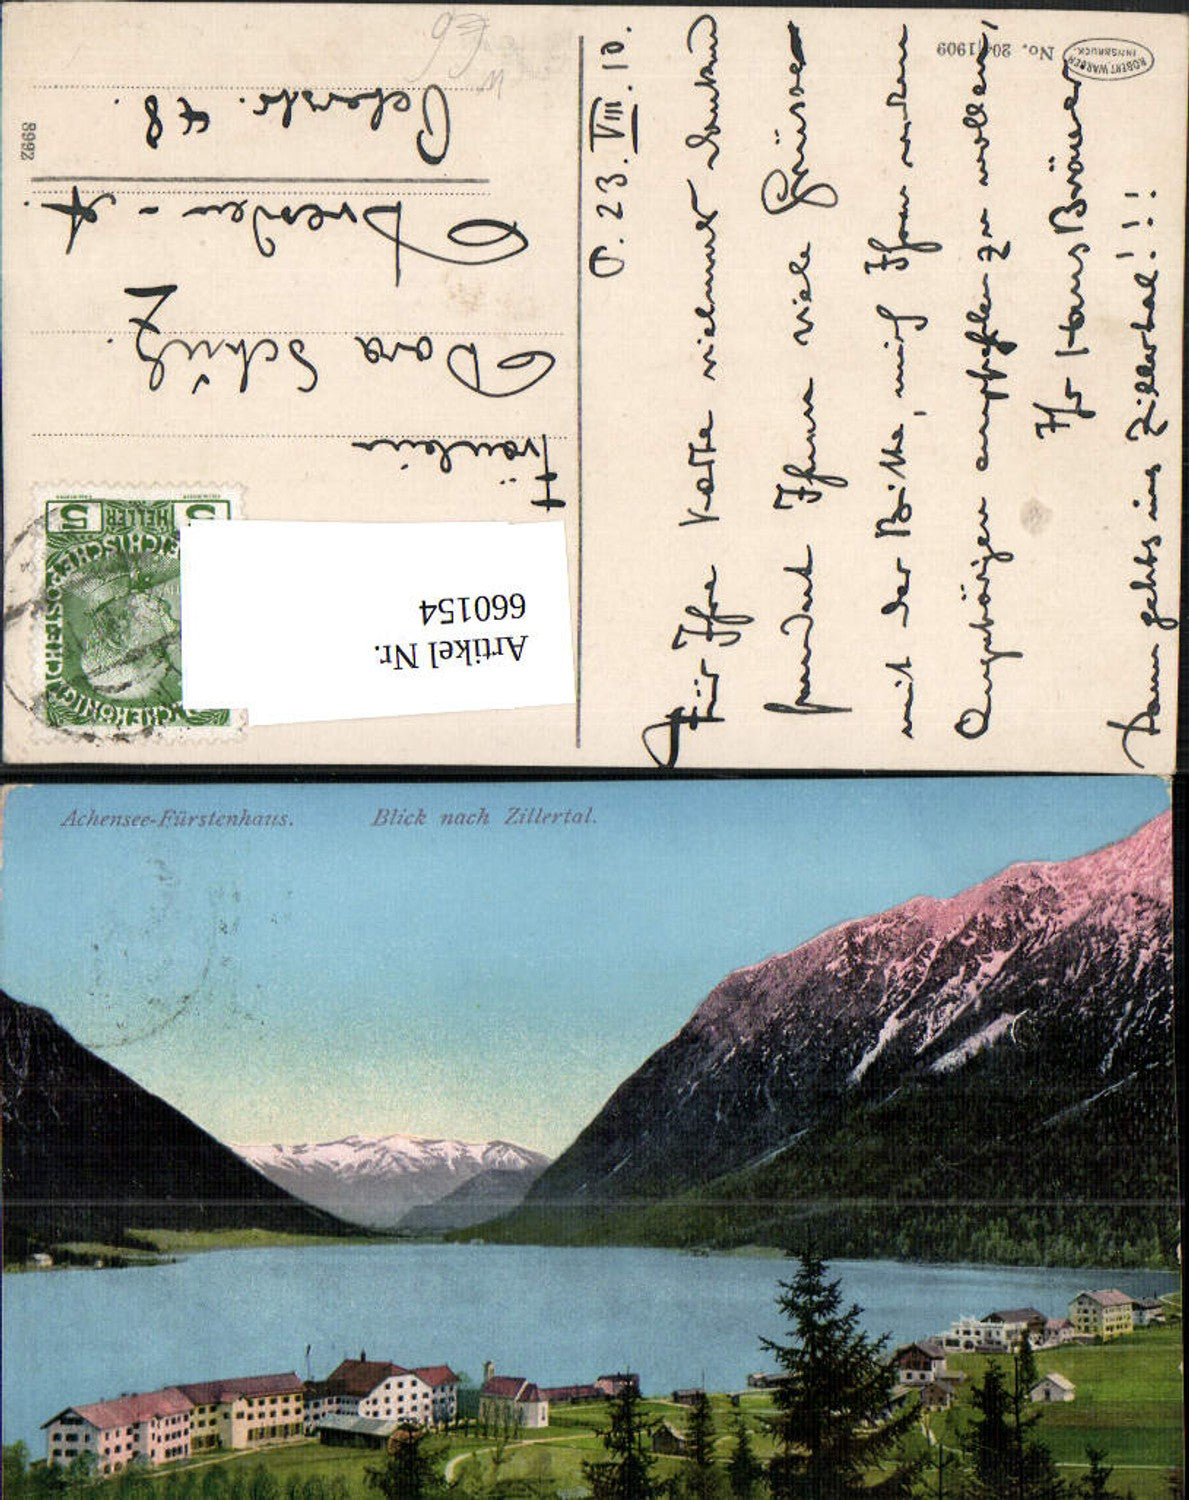 ROBERT WARGER
INNSBRUCK.
No. 204 1909
O. 23. VIII. 10.
Für Ihre Karte vielmals dankend
sendet Ihnen viele Grüsse
mit der Bitte, mich Ihren werten
Angehörigen empfehlen zu wollen,
Ihr Hans Bräuer
dann gehts ins Zillertal!!!
Fräulein
Dora Schulz
Dresden - A.
Peterstr. 48.
8992
93
5 HELLER 5
Artikel Nr.
660154
Achensee-Fürstenhaus. Blick nach Zillertal.